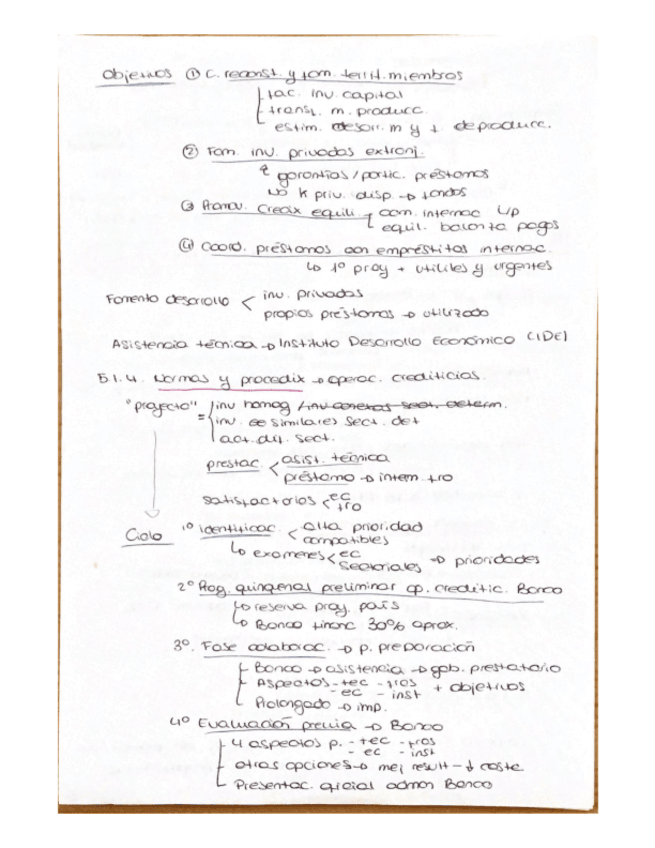 Objetivos ① C. reconst. y fom. territ. miembros
fac. inv. capital
transf. m. producc.
estim. desarr. m y f. de producc.
② Fom. inv. privadas extranj.
garantías/partic. préstamos
No k priv. disp. → fondos
③ Promov. Creaix equili. com. internac L/p
equil. balanza pagos
④ Coord. préstamos con empréstitos internac.
↳ 1º proy + utililes y urgentes
Fomento desarrollo < inv. privadas
propios préstamos → utilizado
Asistencia técnica → Instituto Desarrollo Económico (IDE)
5.1.4. Normas y procedix → operac. crediticias.
"proyecto" = inv homog / inv conexas sect. determ.
inv. se similares sect. det
act. dif. sect.
prestac. < asist. técnica
préstamo → interm. fro
satisfactorios < ec
fro
Ciclo 1º identificac. < alta prioridad
compatibles
↳ exámenes < ec
sectoriales → prioridades
2º Prog. quinquenal preliminar op. creditic. Banco
↳ reserva proy. país
↳ Banco financ 30% aprox.
3º. Fase colaborac. → p. preparación
Banco → asistencia → gob. prestatario
Aspectos - tec - fros + objetivos
- ec - inst
Prolongado → imp.
4º Evaluación previa → Banco
4 aspectos p. - tec - fros
- ec - inst
otras opciones → mej result - ↓ coste
Presentac. oficial admon Banco